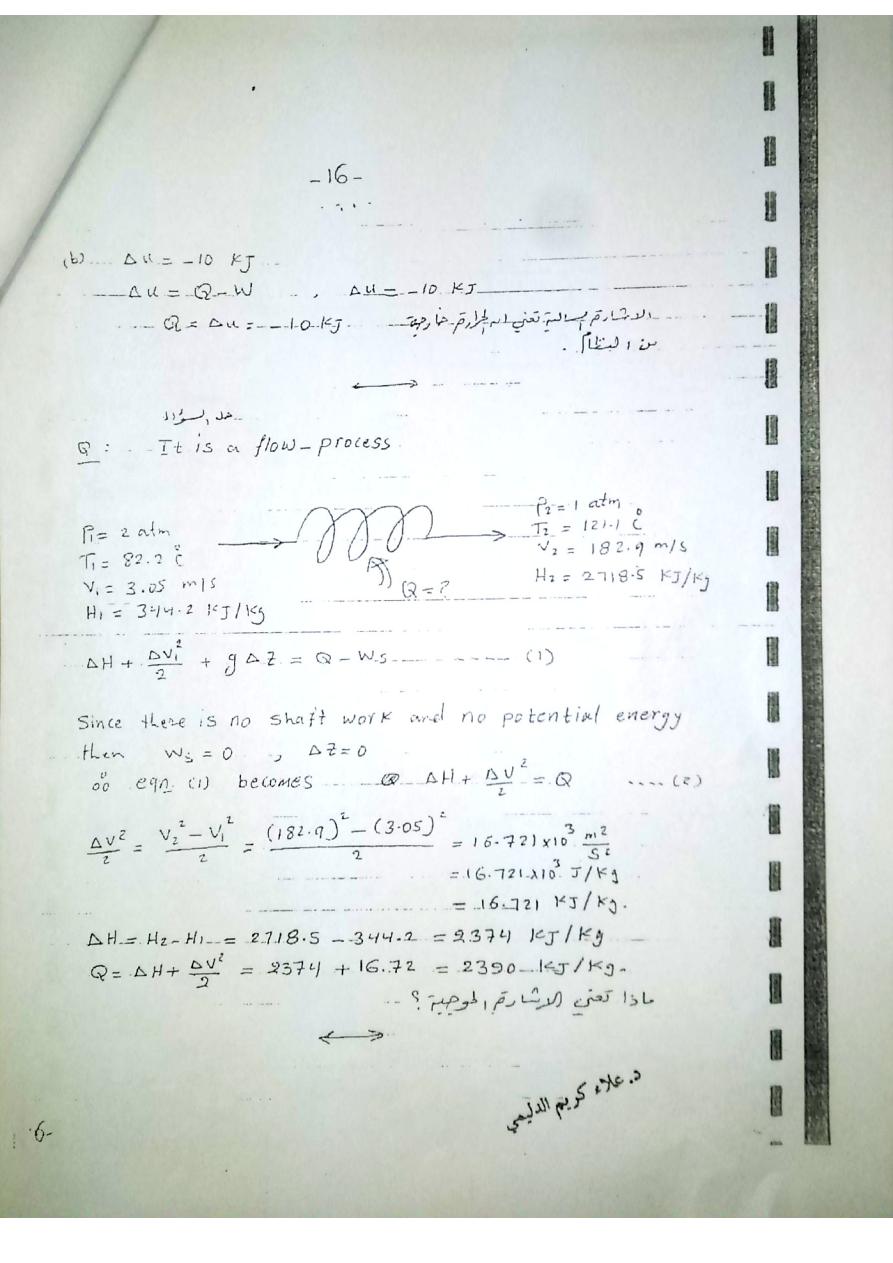 -16-
(b) ΔU = -10 KJ
ΔU = Q - W , ΔU = -10 KJ
Q = ΔU = -10 KJ الاشارة السالبة تعني ان الحرارة خارجة
من النظام .
حل السؤال
Q : It is a flow-process
P₁ = 2 atm
T₁ = 82.2 °C
V₁ = 3.05 m/s
H₁ = 344.2 KJ/Kg
Q = ?
P₂ = 1 atm
T₂ = 121.1 °C
V₂ = 182.9 m/s
H₂ = 2718.5 KJ/Kg
ΔH + ΔV₁²/2 + g ΔZ = Q - Ws -------- (1)
Since there is no shaft work and no potential energy
then Ws = 0 , ΔZ = 0
∴ eqn. (1) becomes ΔH + ΔV²/2 = Q .... (2)
ΔV²/2 = (V₂² - V₁²)/2 = ((182.9)² - (3.05)²)/2 = 16.721 x10³ m²/S²
= 16.721 x10³ J/Kg
= 16.721 KJ/Kg.
ΔH = H₂ - H₁ = 2718.5 - 344.2 = 2374 KJ/Kg
Q = ΔH + ΔV²/2 = 2374 + 16.72 = 2390 KJ/Kg.
ماذا تعني الاشارة الموجبة ؟
د. علاء كريم الدليمي
6-